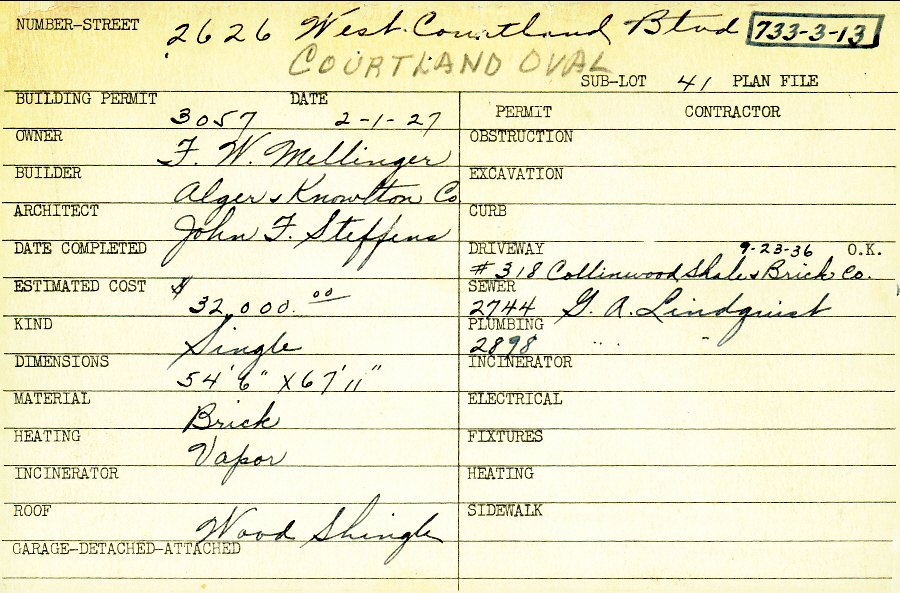 NUMBER-STREET 2626 West Courtland Blvd 733-3-13
COURTLAND OVAL
SUB-LOT 41 PLAN FILE
BUILDING PERMIT 3057 DATE 2-1-27
OWNER F. W. Mellinger
BUILDER Alger & Knowlton Co
ARCHITECT John F. Steffens
DATE COMPLETED
ESTIMATED COST $ 32,000.00
KIND Single
DIMENSIONS 54' 6" X 67' 11"
MATERIAL Brick
HEATING Vapor
INCINERATOR
ROOF Wood Shingle
GARAGE-DETACHED-ATTACHED
PERMIT CONTRACTOR
OBSTRUCTION
EXCAVATION
CURB
DRIVEWAY 9-23-36 O.K.
#318 Collinwood Shale & Brick Co.
SEWER
2744 G. A. Lindquist
PLUMBING
2898 " "
INCINERATOR
ELECTRICAL
FIXTURES
HEATING
SIDEWALK